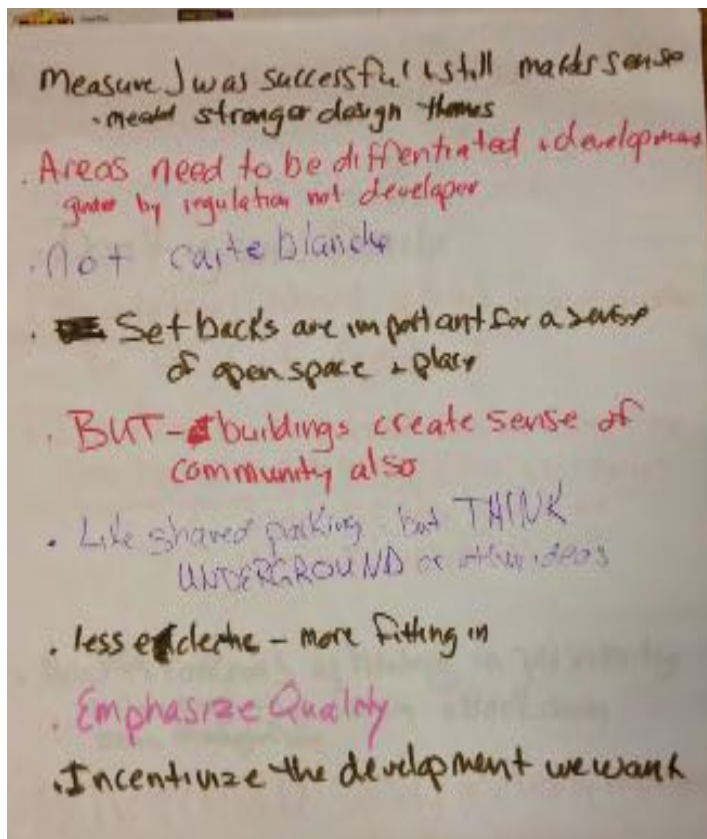 Measure J was successful & still makes sense
· need stronger design themes
· Areas need to be diffentiated & development
by regulation not developer
· Not carte blanche
· Setbacks are important for a sense
of open space & place
· BUT - buildings create sense of
community also
· Like shared parking but THINK
UNDERGROUND or other ideas
· less eclectic - more fitting in
· Emphasize Quality
· Incentivize the development we want